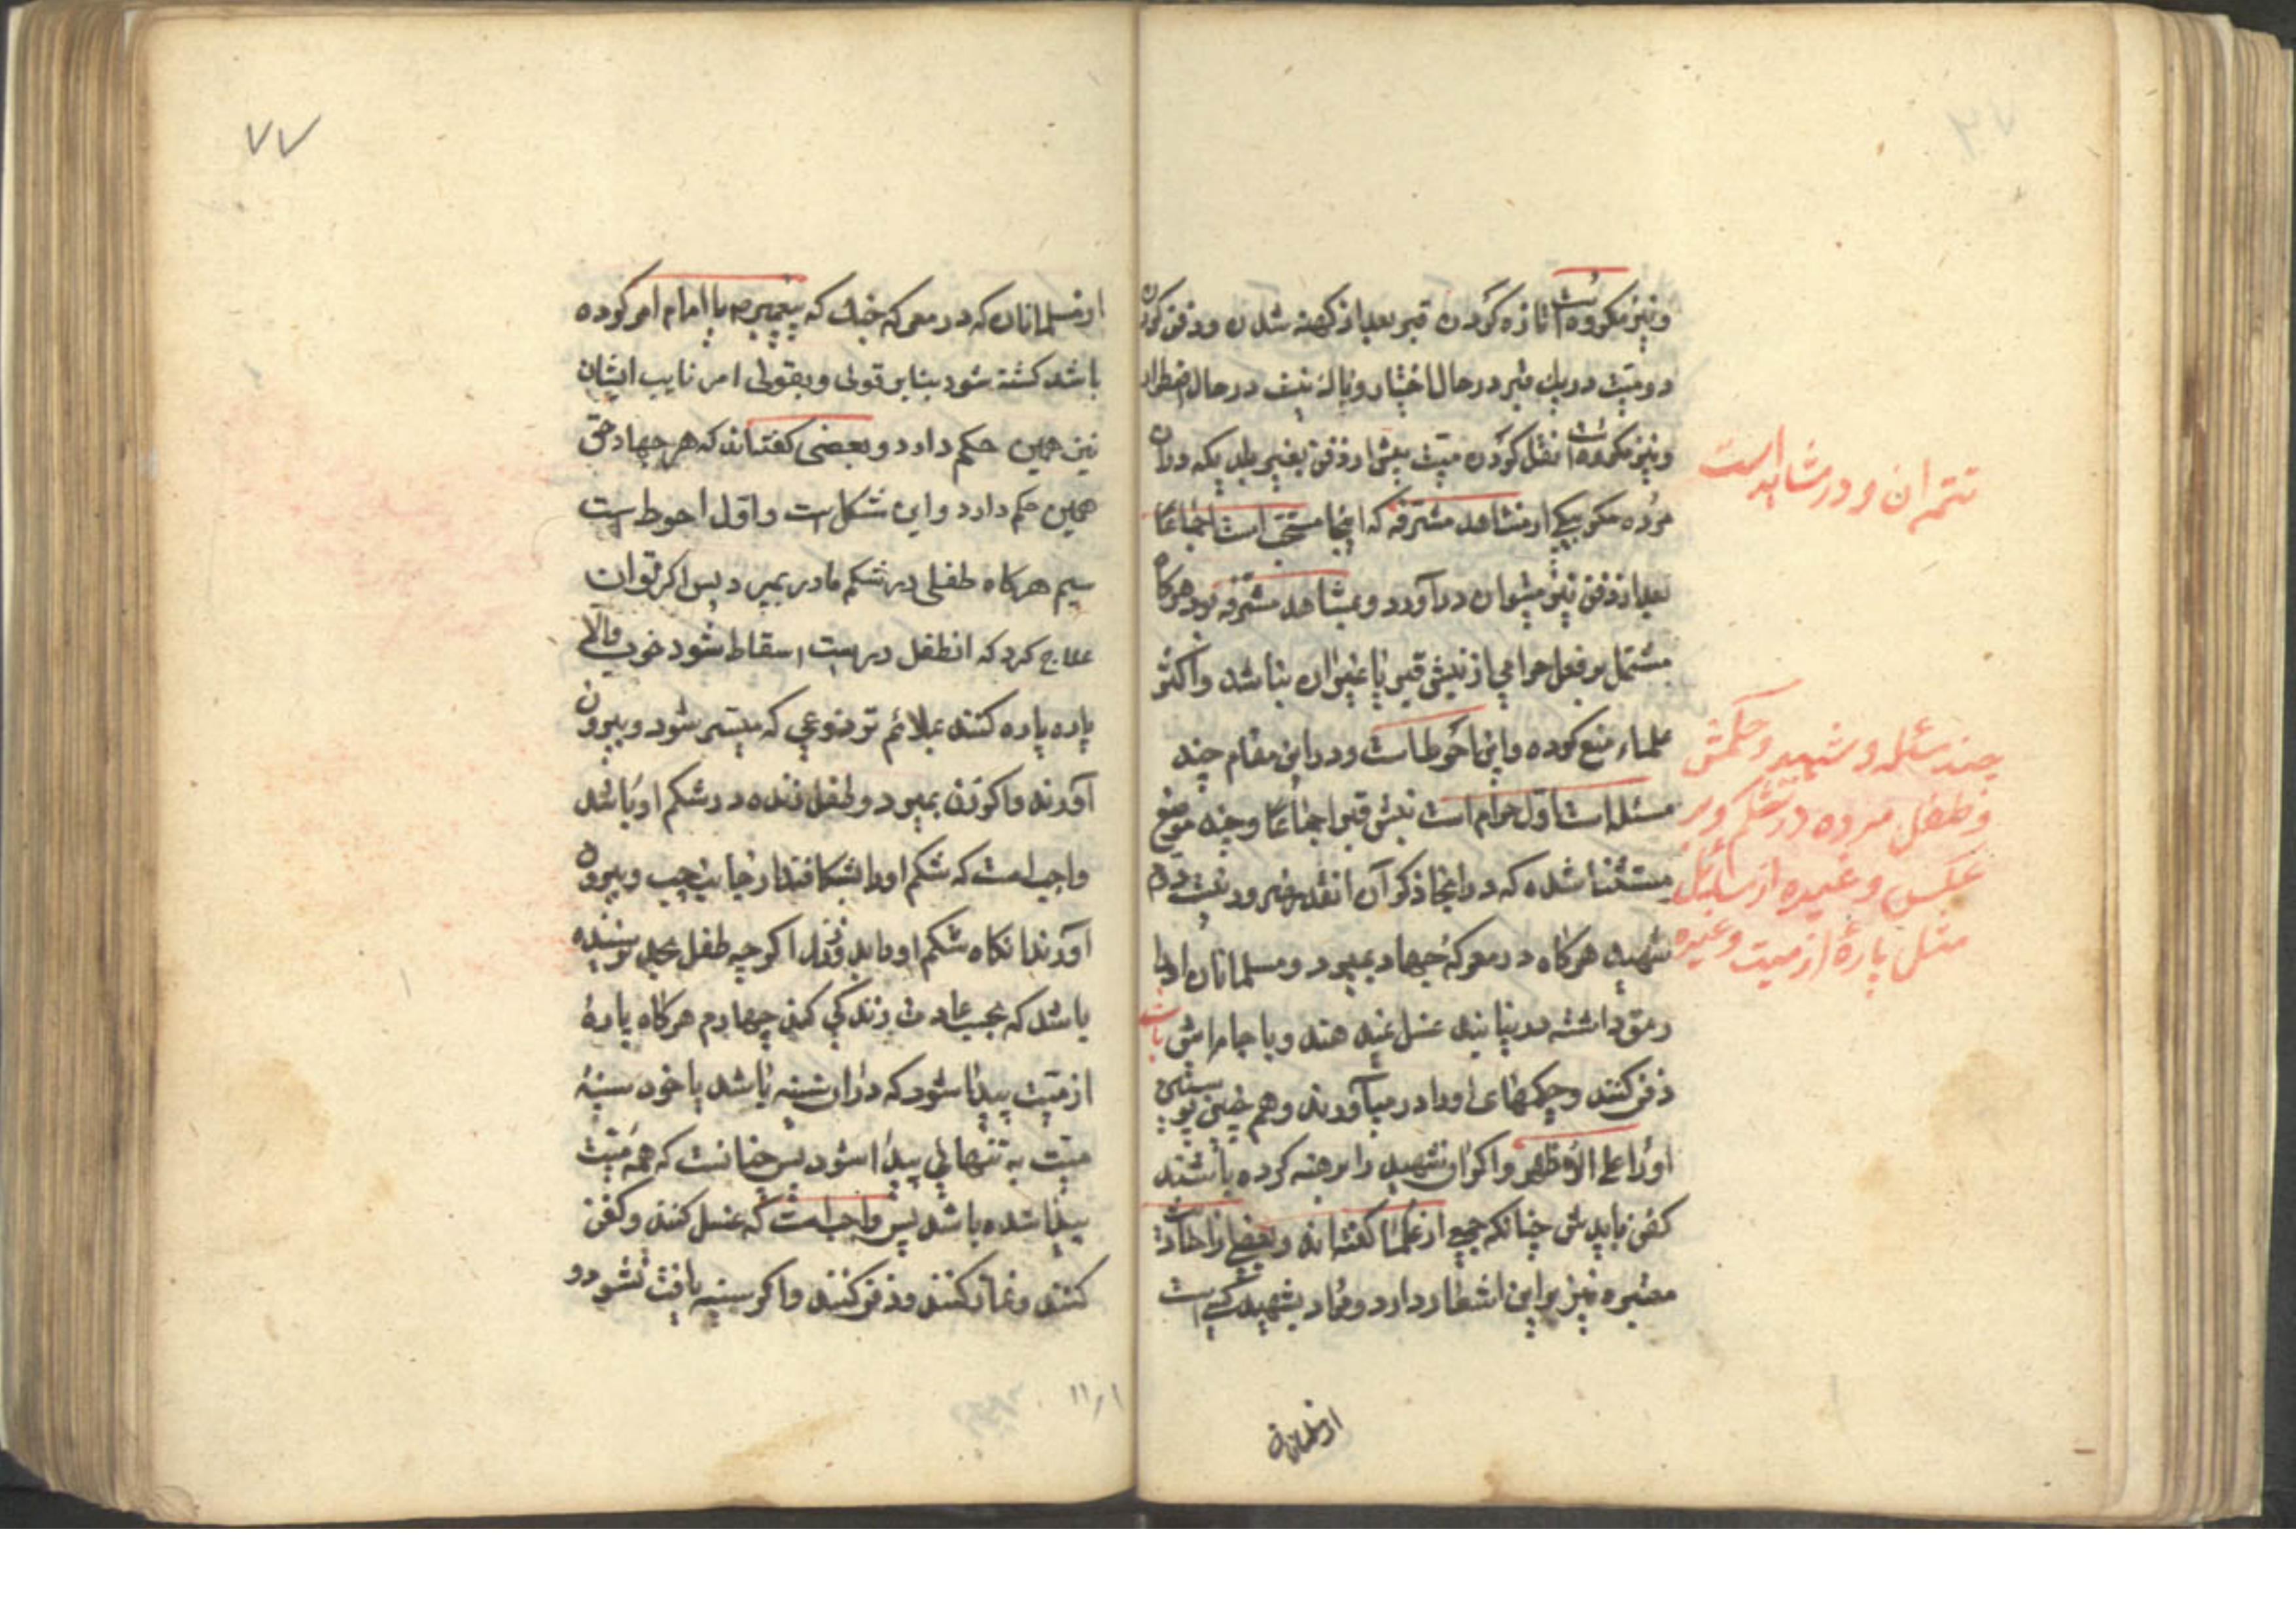 و نیز مکروه است تازه کردن قبر بعد از کهنه شدن و دفن کردن
دو میت در یک قبر در حال اختیار و باک نیست در حال اضطرار
و نیز مکروه است نقل کردن میت پیش از دفن بغیر بلدیکه در آن
مرده مکر بیکی از مشاهد مشرفه که اینجا مستحب است اجماعا
بعد از دفن نیز میتوان در آورد و بمشاهد مشرفه برد هرگاه
مشتمل بر فعل حرامی از نبش قبر یا غیر آن نباشد و اکثر
علماء منع کرده و این احوط است و در این مقام چند
مسئله است اول حرام است نبش قبر اجماعا و چند موضع
مستثنا شده که در اینجا ذکر آن انقدر ضرور نیست دویم
شهید هرگاه در معرکه جهاد بمیرد و مسلمانان او را با
رمق داشته در نیابند غسل نمیدهند و با جامهاش
دفن کنند و چکمهای او را در میآورند و هم چنین پوستین
او را علی الاظهر و اگر آن شهید را برهنه کرده باشند
کفن باید ش چنانکه جمعی از علما گفتهاند و بعضی از احادیث
معتبره نیز بر این اشعار دارد و مراد بشهید کسی است
از مسلمانان
تتمه آن و در مشاهد است
چند مسئله و شهید و حکمش
و طفل مرده در شکم و بر
عکس و غیره از مسایل
مثل پارهٔ از میت و غیره
۷۷
از مسلمانان که در معرکه جنک که پیغمبر ص یا امام امر کرده
باشد کشته شود بنابر قولی و بقولی امر نایب ایشان
نیز همین حکم دارد و بعضی گفتهاند که هر جهاد حق
همین حکم دارد و این مشکل است و اول احوط است
سیم هرکاه طفلی در شکم مادر بمیرد پس اکر توان
علاج کرد که انطفل درست اسقاط شود خوب و الا
پاره پاره کنند بملائم تر نوعی که میسر شود و بیرون
آورند و اکر زن بمیرد و طفل زنده در شکم او باشد
واجب است که شکم او را بشکافند از جانب چپ و بیرون
آورند انکاه شکم او را بدوزند اکرچه طفل بحدی نرسیده
باشد که بحسب عادت زندکی کند چهارم هرکاه پارهٔ
از میت پیدا شود که در آن سینه باشد یا خود سینهٔ
میت به تنهایی پیدا شود پس چنانست که همه میت
پیدا شده باشد پس واجب است که غسل کنند و کفن
کنند و نماز کنند و دفن کنند و اکر سینه یافت نشود و